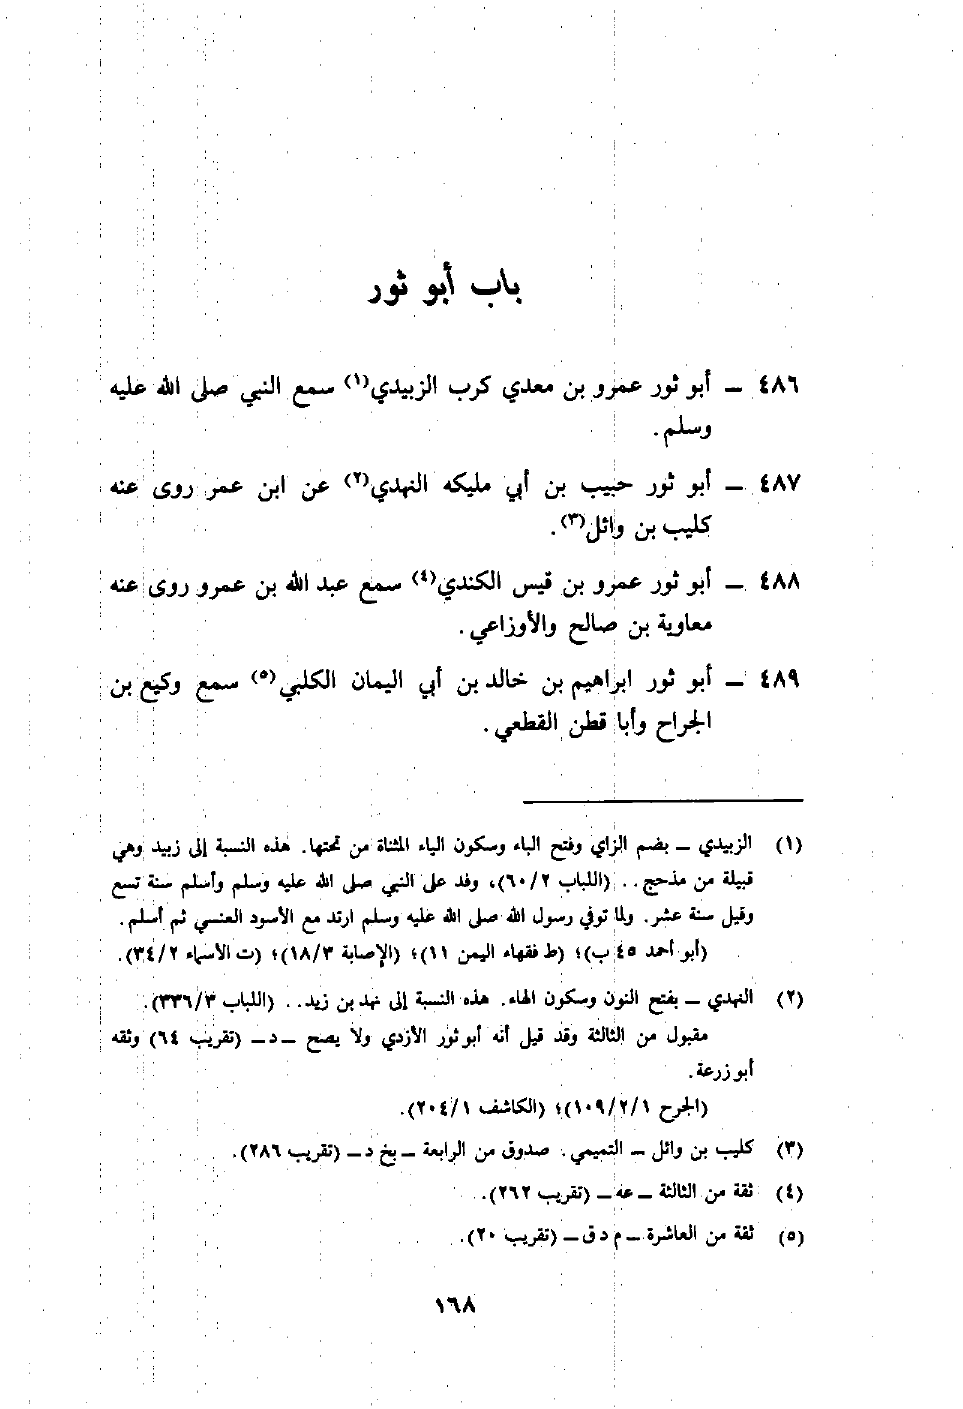 باب أبو ثور
٤٨٦ ــ أبو ثور عمرو بن معدي كرب الزبيدي(١) سمع النبي صلى الله عليه
وسلم.
٤٨٧ ــ أبو ثور حبيب بن أبي مليكه النهدي(٢) عن ابن عمر روى عنه
كليب بن وائل(٣).
٤٨٨ ــ أبو ثور عمرو بن قيس الكندي(٤) سمع عبد الله بن عمرو روى عنه
معاوية بن صالح والأوزاعي.
٤٨٩ ــ أبو ثور ابراهيم بن خالد بن أبي اليمان الكلبي(٥) سمع وكيع بن
الجراح وأبا قطن القطعي.
(١) الزبيدي ــ بضم الزاي وفتح الباء وسكون الياء المثناة من تحتها. هذه النسبة إلى زبيد وهي
قبيلة من مذحج.. (اللباب ٦٠/٢)، وفد على النبي صلى الله عليه وسلم وأسلم سنة تسع
وقيل سنة عشر. ولما توفي رسول الله صلى الله عليه وسلم ارتد مع الأسود العنسي ثم أسلم.
(أبو أحمد ٤٥ ب)؛ (ط فقهاء اليمن ١١)؛ (الإصابة ١٨/٣)؛ (ت الأسماء ٣٤/٢).
(٢) النهدي ــ بفتح النون وسكون الهاء. هذه النسبة إلى نهد بن زيد.. (اللباب ٣٣٦/٣).
مقبول من الثالثة وقد قيل أنه أبو ثور الأزدي ولا يصح ــ د ــ (تقريب ٦٤) وثقه
أبو زرعة.
(الجرح ١٠٩/٢/١)؛ (الكاشف ٢٠٤/١).
(٣) كليب بن وائل ــ التميمي. صدوق من الرابعة ــ بخ د ــ (تقريب ٢٨٦).
(٤) ثقة من الثالثة ــ عه ــ (تقريب ٢٦٢).
(٥) ثقة من العاشرة ــ م د ق ــ (تقريب ٢٠).
١٦٨